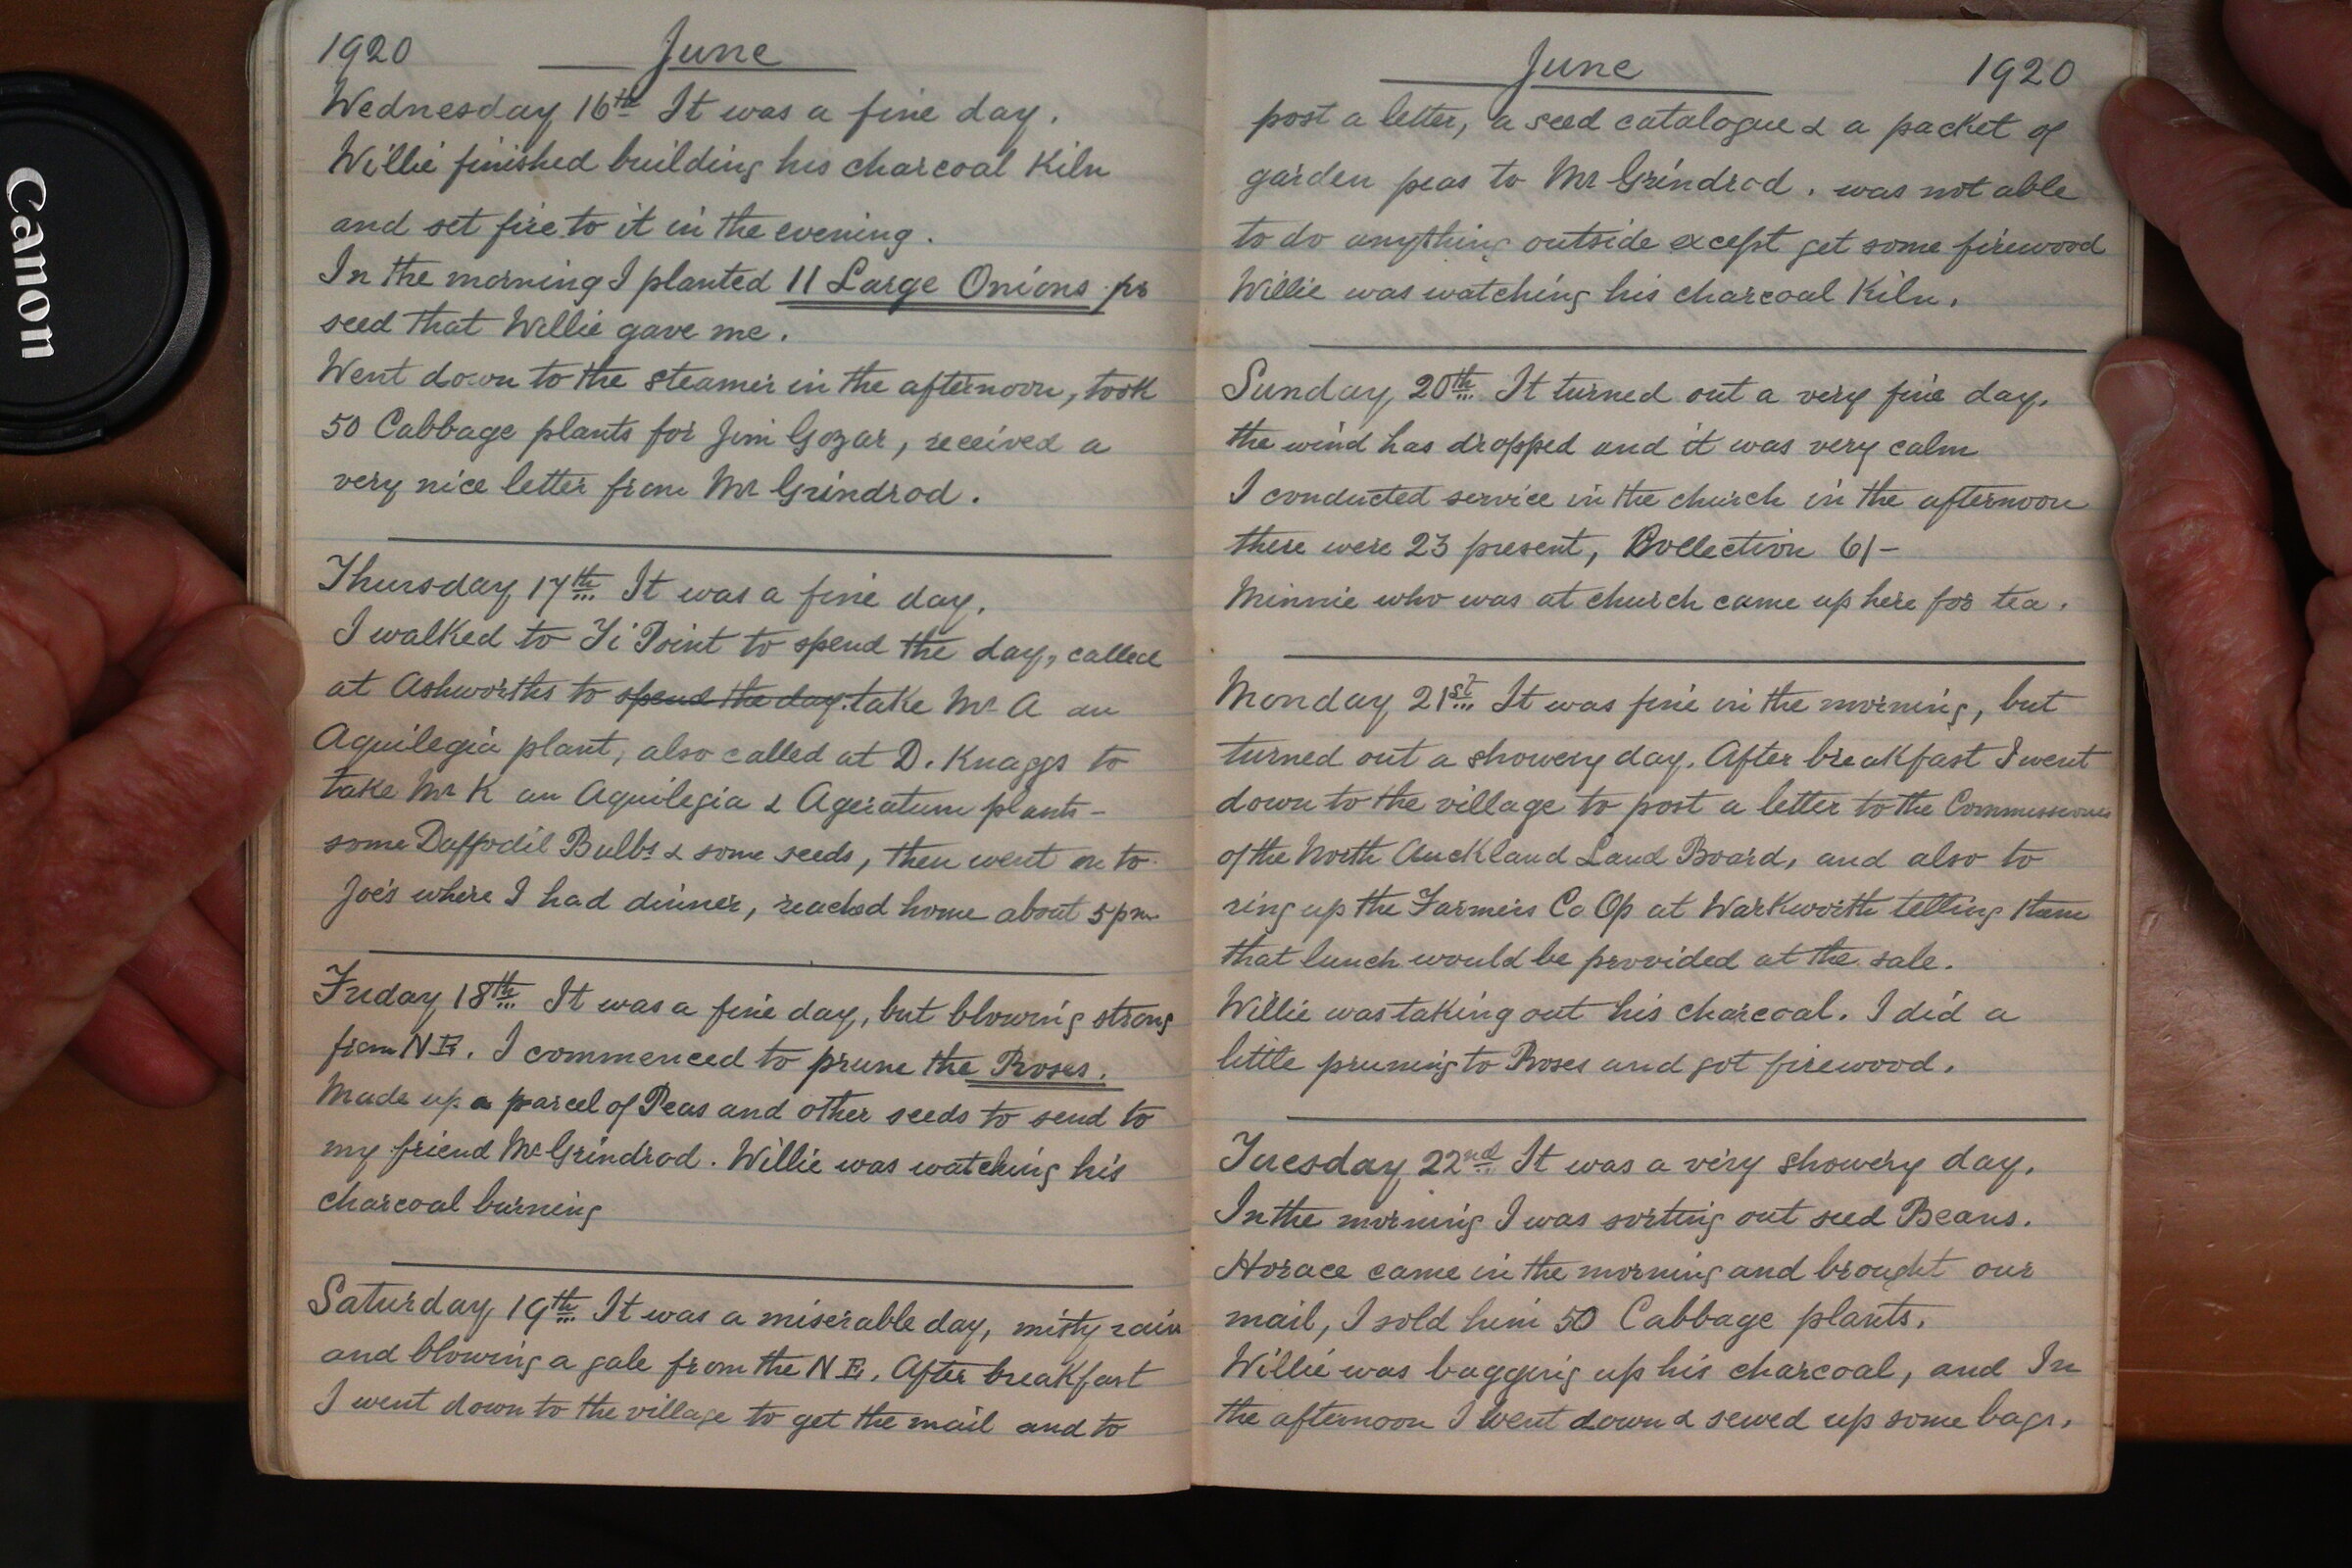 Canon
1920 June
Wednesday 16th It was a fine day.
Willie finished building his charcoal Kiln
and set fire to it in the evening.
In the morning I planted 11 Large Onions for
seed that Willie gave me.
Went down to the steamer in the afternoon, took
50 Cabbage plants for Jim Gozar, received a
very nice letter from Mr Grindrod.
Thursday 17th It was a fine day.
I walked to Ti Point to spend the day, called
at Ashworths to spend the day take Mr A an
Aquilegia plant, also called at D. Knaggs to
take Mr K an Aquilegia & Ageratum plants -
some Daffodil Bulbs & some seeds, then went on to
Joe's where I had dinner, reached home about 5 pm
Friday 18th It was a fine day, but blowing strong
from N E. I commenced to prune the Roses.
Made up a parcel of Peas and other seeds to send to
my friend Mr Grindrod. Willie was watching his
charcoal burning
Saturday 19th It was a miserable day, misty rain
and blowing a gale from the N E. After breakfast
I went down to the village to get the mail and to
June 1920
post a letter, a seed catalogue & a packet of
garden peas to Mr Grindrod. was not able
to do anything outside except get some firewood
Willie was watching his charcoal Kiln.
Sunday 20th It turned out a very fine day.
the wind has dropped and it was very calm
I conducted service in the church in the afternoon
there were 23 present, Collection 6/-
Minnie who was at church came up here for tea.
Monday 21st It was fine in the morning, but
turned out a showery day. After breakfast I went
down to the village to post a letter to the Commissioner
of the North Auckland Land Board, and also to
ring up the Farmers Co Op at Warkworth telling them
that lunch would be provided at the sale.
Willie was taking out his charcoal. I did a
little pruning to Roses and got firewood.
Tuesday 22nd It was a very showery day.
In the morning I was sorting out seed Beans.
Horace came in the morning and brought our
mail, I sold him 50 Cabbage plants.
Willie was bagging up his charcoal, and In
the afternoon I went down & sewed up some bags.